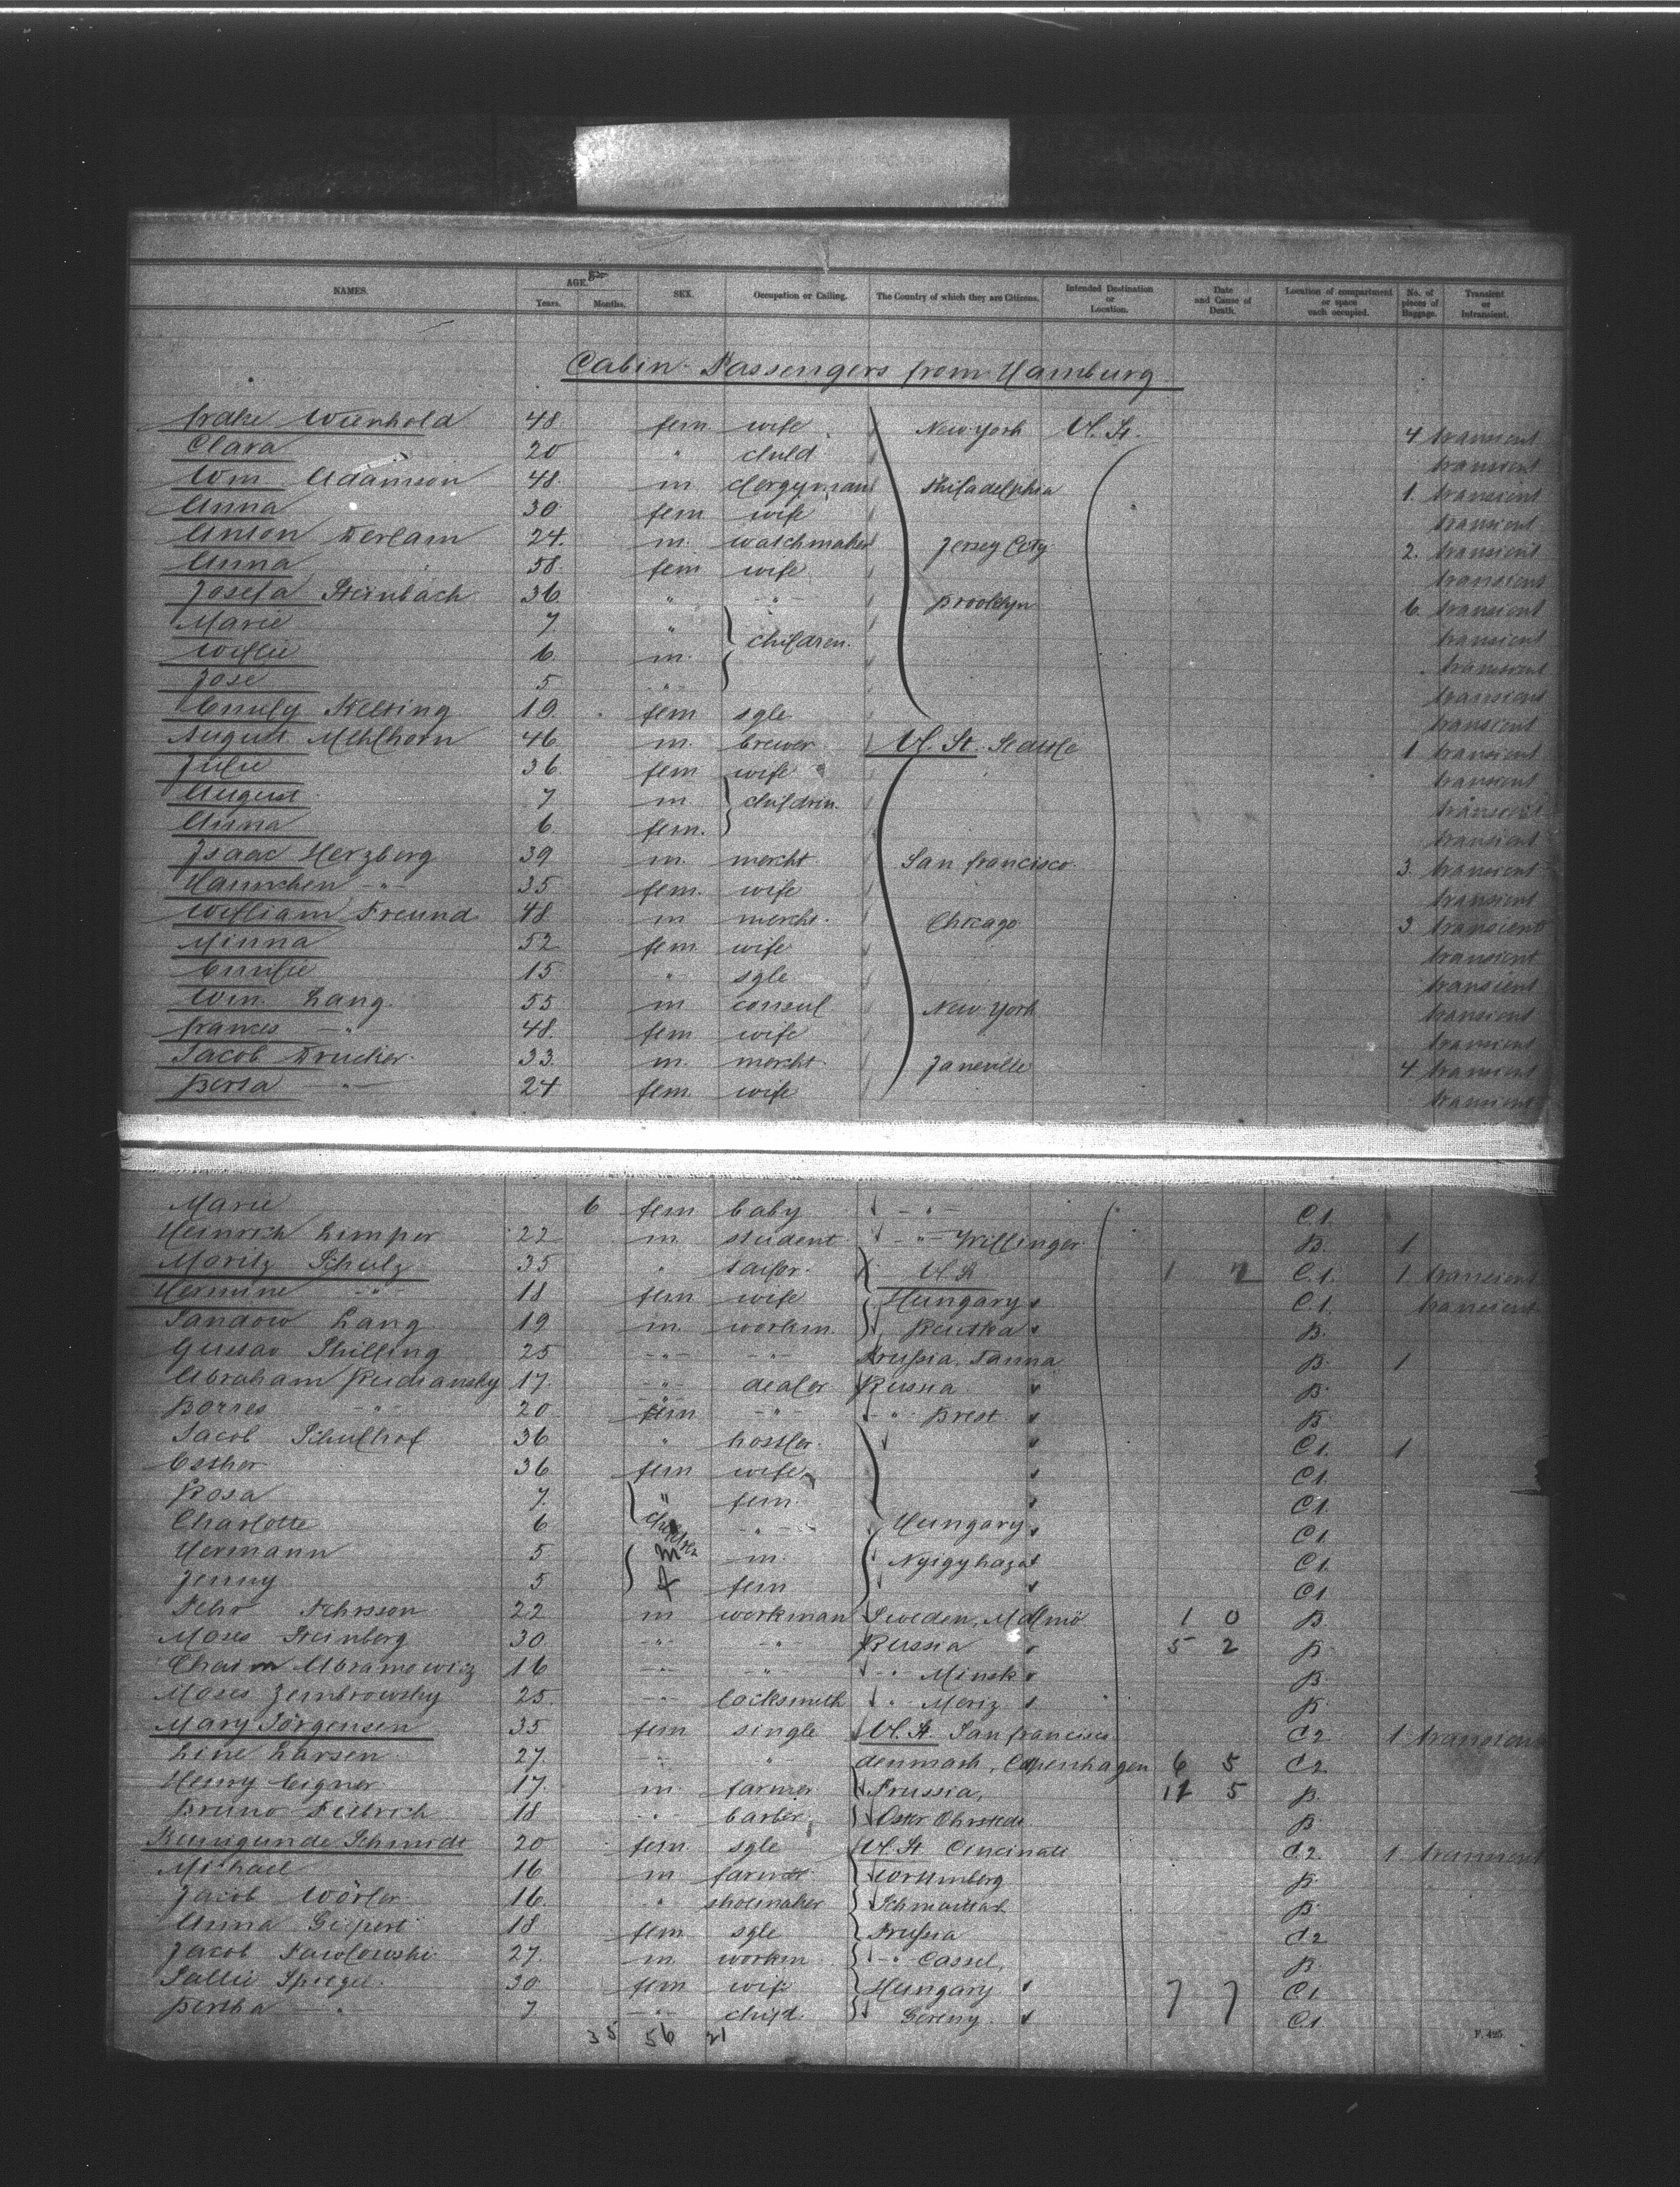 NAMES. AGE. Years. Months. SEX. Occupation or Calling. The Country of which they are Citizens. Intended Destination or Location. Date and Cause of Death. Location of compartment or space each occupied. No. of pieces of Baggage. Transient or Intransient.
Cabin-Passengers from Hamburg
48 fem wife New York U. St. 4 transient
Clara 20 " child transient
Wm. Adamson 48 m. clergyman Philadelphia 1. transient
Anna 30 fem wife transient
Anton 24. m. watchmaker Jersey City 2. transient
Anna 58 fem wife transient
Josefa Steinbach 36 " - " - Brooklyn 6. transient
Marie 7 " children. transient
Willie 6 m. transient
Jose 5 - " - transient
19. fem sgle transient
August Mehlhorn 46 m. brewer U. St. Seattle 1 transient
Julie 36 fem wife transient
August 7 m children. transient
Anna 6 fem. transient
Isaac Herzberg 39 m. mercht San francisco. 3. transient
Hannchen - " - 35 fem. wife transient
William Freund 48 m mercht. Chicago 3. transient
Minna 52 fem. wife transient
Emilie 15 " sgle transient
Wm. Lang. 55 m consul New York transient
frances - " - 48. fem wife transient
Jacob Drucker. 33. m. mercht. Janeville 4 transient
Berta - " - 24 fem. wife transient
Marie 6 fem baby - " - C.1.
Heinrich Limper 22 m. student - " - Willinger B. 1
Moritz Schulz 35 " tailor. U. St. 1 2 C.1. 1 transient
Hermine - " - 18 fem wife Hungary C.1. transient
Sandow Lang 19 m. workm. B.
Gustav Shilling 25 - " - - " - Prussia, B. 1
Abraham 17. - " - dealer Russia B.
- " - 20 fem - " - - " - Brest. B
Jacob Schulhof 36 " hostler. C1. 1
Esther 36 fem wife C1.
Rosa 7. " fem. C1.
Charlotte 6 children - " - Hungary C1.
Hermann 5 m m. C1.
Jenny 5 f fem C1
22 m workman Sweden, Malmö 1 0 B
Moses Steinberg 30. - " - - " - Russia 5 2 B
Chaim Abramowicz 16 - " - - " - - " - Minsk B.
Moses Zembrowsky 25 - " - locksmith - " - B.
Mary Jörgensen 35 fem single U. St. San francisco C2 1 transient
Line Larsen 27. - " - " denmark, Copenhagen 6 5 C2
Henry Eigner 17. m. farmer Prussia, 11 5 B.
Bruno 18 - " - barber B.
Schmidt 20 fem sgle U. St. Cincinati C.2. 1 transient
Michael 16 m farmer B.
Jacob Wörler 16. " shoemaker B.
Anna 18 fem sgle Prussia C2
Jacob Pawlowski 27. m. workm - " - Cassel, B.
Sallie Spiegel. 30 fem wife Hungary 7 7 C1
Bertha - " 7 - " - child. C1
35 56 21
F. 425.